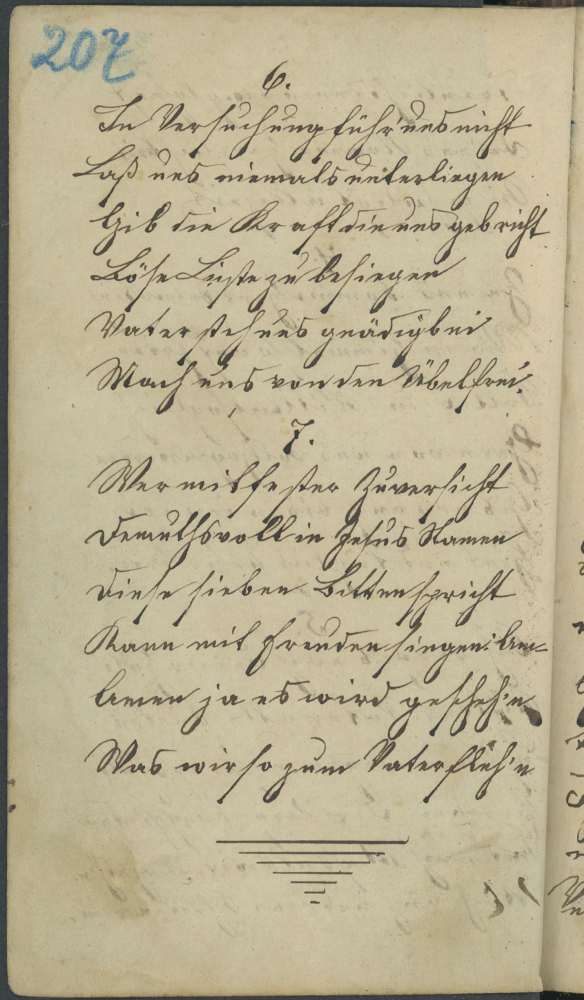 207
6.
In Versuchung führ' uns nicht
Laß uns niemals unterliegen
Gib die Kraft die uns gebricht
Böse Lüste zu besiegen
Vater steh uns gnädig bei
Mach uns von den Übel frei.
7.
Wer mit fester Zuversicht
Demuthsvoll in Jesus Namen
Diese sieben Bitten spricht
Kann mit Freuden singen: Am=
Amen ja es wird gescheh'n
Was wir so zum Vater fleh'n